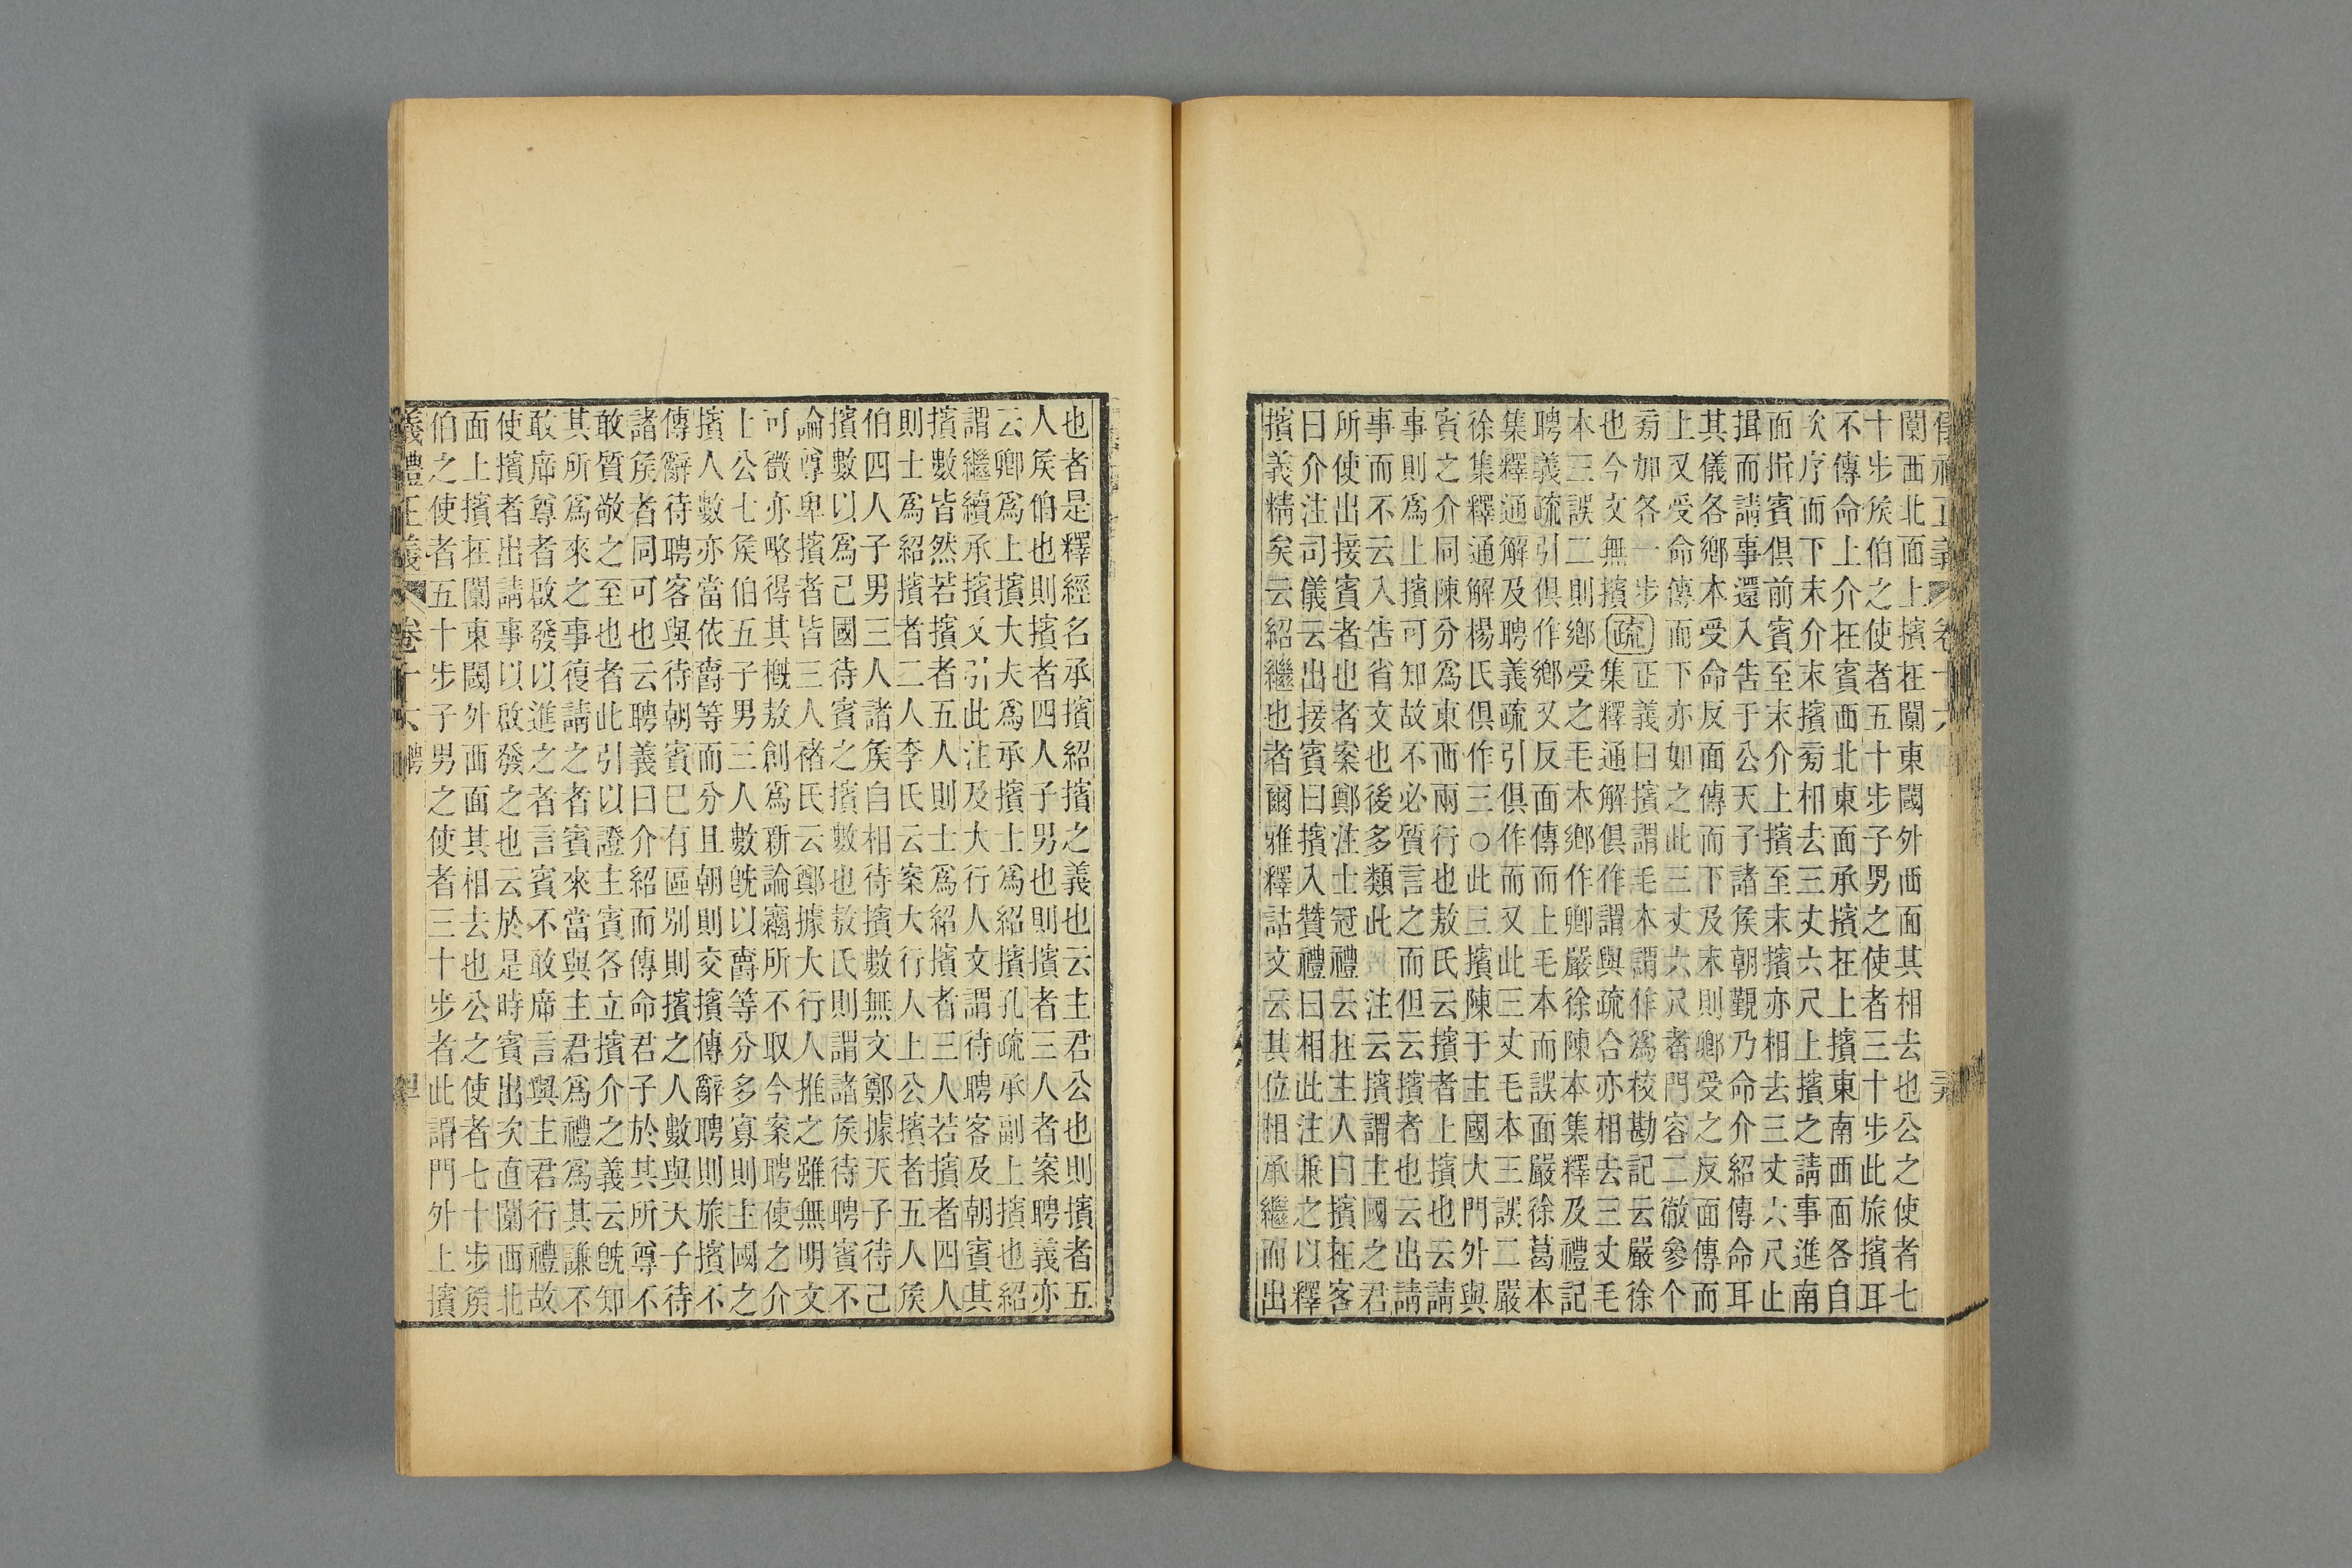 闑西北面上擯在闑東閾外西面其相去也公之使者七
十步侯伯之使者五十步子男之使者三十步此旅擯耳
不傳命上介在賓西北東面承擯在上擯東南西面各自
次序而下末介末擯旁相去三丈六尺上擯之請事進南
面揖賓俱前賓至末介上擯至末擯亦相去三丈六尺止
揖而請事還入告于公天子諸侯朝覲乃命介紹傳命耳
其儀各鄉本受命反面傳而下及末則鄉受之反面傳而
上又受命傳而下亦如之此三丈六尺者門容二徹參个
旁加各一步
也今文無擯
疏
正義曰擯謂毛本謂作爲校勘記云嚴徐
集釋通解俱作謂與疏合亦相去三丈毛
本三誤二則鄉受之毛本鄉作卿嚴徐陳本集釋及禮記
聘義疏引俱作鄉又反面傳而上毛本而誤面嚴徐葛本
集釋通解及聘義疏引俱作而又此三丈毛本三誤二嚴
徐集釋通解楊氏俱作三○此三擯陳于主國大門外與
賓之介同陳分爲東西兩行也敖氏云擯者上擯也云請
事則爲上擯可知故不必質言之而但云擯者也云出請
事而不云入告省文也後多類此 注云擯謂主國之君
所使出接賓者也者案鄭注士冠禮云在主人曰擯在客
曰介注司儀云出接賓曰擯入贊禮曰相此注兼之以釋
擯義精矣云紹繼也者爾雅釋詁文云其位相承繼而出
也者是釋經名承擯紹擯之義也云主君公也則擯者五
人侯伯也則擯者四人子男也則擯者三人者案聘義亦
云卿爲上擯大夫爲承擯士爲紹擯孔疏承副上擯也紹
謂繼續承擯又引此注及大行人文謂待聘客及朝賓其
擯數皆然若擯者五人則士爲紹擯者三人若擯者四人
則士爲紹擯者二人李氏云案大行人上公擯者五人侯
伯四人子男三人諸侯自相待擯數無文鄭據天子待己
擯數以爲己國待賓之擯數也敖氏則謂諸侯待聘賓不
論尊卑擯者皆三人褚氏云鄭據大行人推之雖無明文
可徵亦略得其槪敖創爲新論竊所不取今案聘使之介
上公七侯伯五子男三人數旣以爵等分多寡則主國之
擯人數亦當依爵等而分且朝則交擯傳辭聘則旅擯不
傳辭待聘客與待朝賓已有區別則擯之人數與天子待
諸侯者同可也云聘義曰介紹而傳命君子於其所尊不
敢質敬之至也者此引以證主賓各立擯介之義云旣知
其所爲來之事復請之者賓來當與主君爲禮爲其謙不
敢席尊者啟發以進之者言賓不敢席言與主君行禮故
使擯者出請事以啟發之也云於是時賓出次直闑西北
面上擯在闑東閾外西面其相去也公之使者七十步侯
伯之使者五十步子男之使者三十步者此謂門外上擯
儀禮正義 卷十六 聘